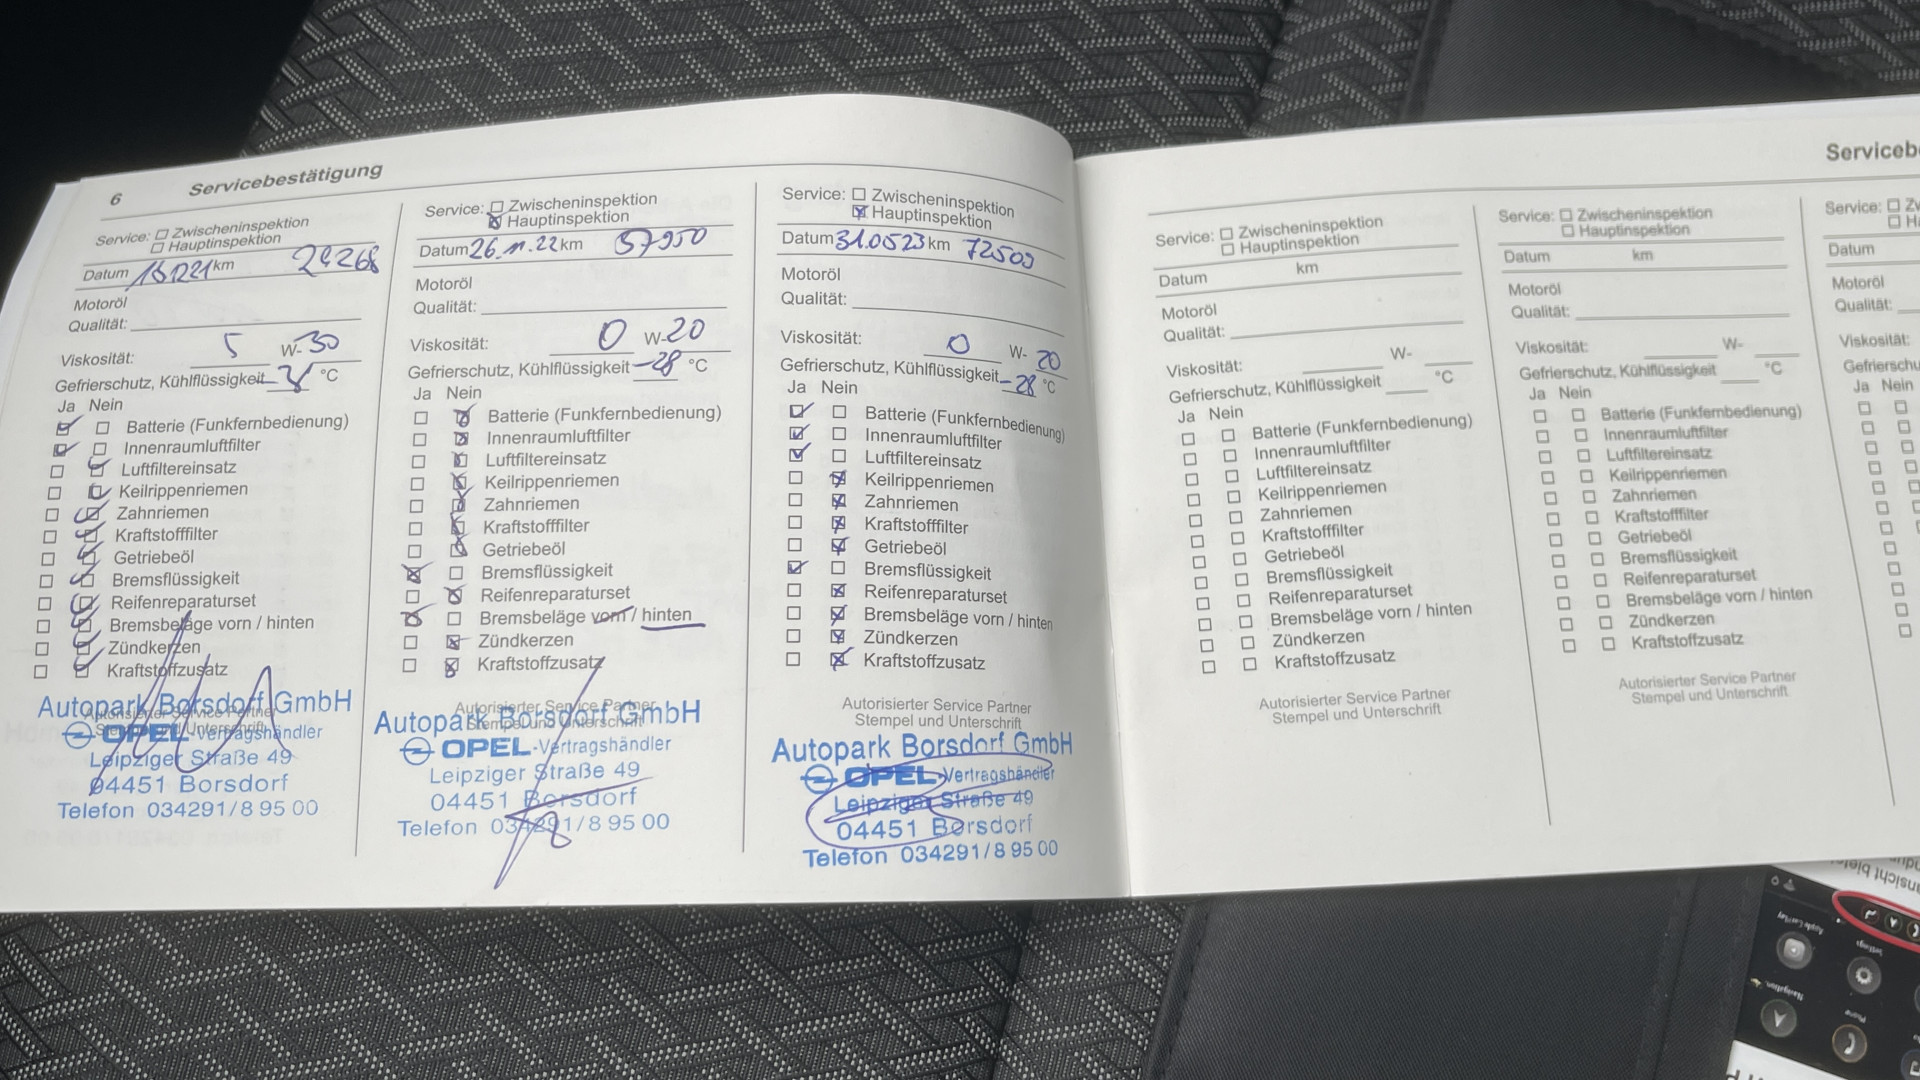 6
Servicebestätigung
Service: Zwischeninspektion
Hauptinspektion
Datum km 24268
Motoröl
Qualität:
Viskosität: 5 W-30
Gefrierschutz, Kühlflüssigkeit °C
Ja Nein
Batterie (Funkfernbedienung)
Innenraumluftfilter
Luftfiltereinsatz
Keilrippenriemen
Zahnriemen
Kraftstofffilter
Getriebeöl
Bremsflüssigkeit
Reifenreparaturset
Bremsbeläge vorn / hinten
Zündkerzen
Kraftstoffzusatz
Autorisierter Service Partner
Stempel und Unterschrift
Autopark Borsdorf GmbH
OPEL-Vertragshändler
Leipziger Straße 49
04451 Borsdorf
Telefon 034291/8 95 00
Service: Zwischeninspektion
Hauptinspektion
Datum 26.11.22 km 57950
Motoröl
Qualität:
Viskosität: 0 W-20
Gefrierschutz, Kühlflüssigkeit -28 °C
Ja Nein
Batterie (Funkfernbedienung)
Innenraumluftfilter
Luftfiltereinsatz
Keilrippenriemen
Zahnriemen
Kraftstofffilter
Getriebeöl
Bremsflüssigkeit
Reifenreparaturset
Bremsbeläge vorn / hinten
Zündkerzen
Kraftstoffzusatz
Autorisierter Service Partner
Stempel und Unterschrift
Autopark Borsdorf GmbH
OPEL-Vertragshändler
Leipziger Straße 49
04451 Borsdorf
Telefon 034291/8 95 00
Service: Zwischeninspektion
Hauptinspektion
Datum 31.05.23 km 72509
Motoröl
Qualität:
Viskosität: 0 W- 20
Gefrierschutz, Kühlflüssigkeit -28 °C
Ja Nein
Batterie (Funkfernbedienung)
Innenraumluftfilter
Luftfiltereinsatz
Keilrippenriemen
Zahnriemen
Kraftstofffilter
Getriebeöl
Bremsflüssigkeit
Reifenreparaturset
Bremsbeläge vorn / hinten
Zündkerzen
Kraftstoffzusatz
Autorisierter Service Partner
Stempel und Unterschrift
Autopark Borsdorf GmbH
OPEL-Vertragshändler
Leipziger Straße 49
04451 Borsdorf
Telefon 034291/8 95 00
Serviceb
Service: Zwischeninspektion
Hauptinspektion
Datum km
Motoröl
Qualität:
Viskosität: W-
Gefrierschutz, Kühlflüssigkeit °C
Ja Nein
Batterie (Funkfernbedienung)
Innenraumluftfilter
Luftfiltereinsatz
Keilrippenriemen
Zahnriemen
Kraftstofffilter
Getriebeöl
Bremsflüssigkeit
Reifenreparaturset
Bremsbeläge vorn / hinten
Zündkerzen
Kraftstoffzusatz
Autorisierter Service Partner
Stempel und Unterschrift
Service: Zwischeninspektion
Hauptinspektion
Datum km
Motoröl
Qualität:
Viskosität: W-
Gefrierschutz, Kühlflüssigkeit °C
Ja Nein
Batterie (Funkfernbedienung)
Innenraumluftfilter
Luftfiltereinsatz
Keilrippenriemen
Zahnriemen
Kraftstofffilter
Getriebeöl
Bremsflüssigkeit
Reifenreparaturset
Bremsbeläge vorn / hinten
Zündkerzen
Kraftstoffzusatz
Autorisierter Service Partner
Stempel und Unterschrift
Service: Zw
H
Datum
Motoröl
Qualität:
Viskosität:
Gefrierschu
Ja Nein
Apple CarPlay
Settings
Navigation
Phone